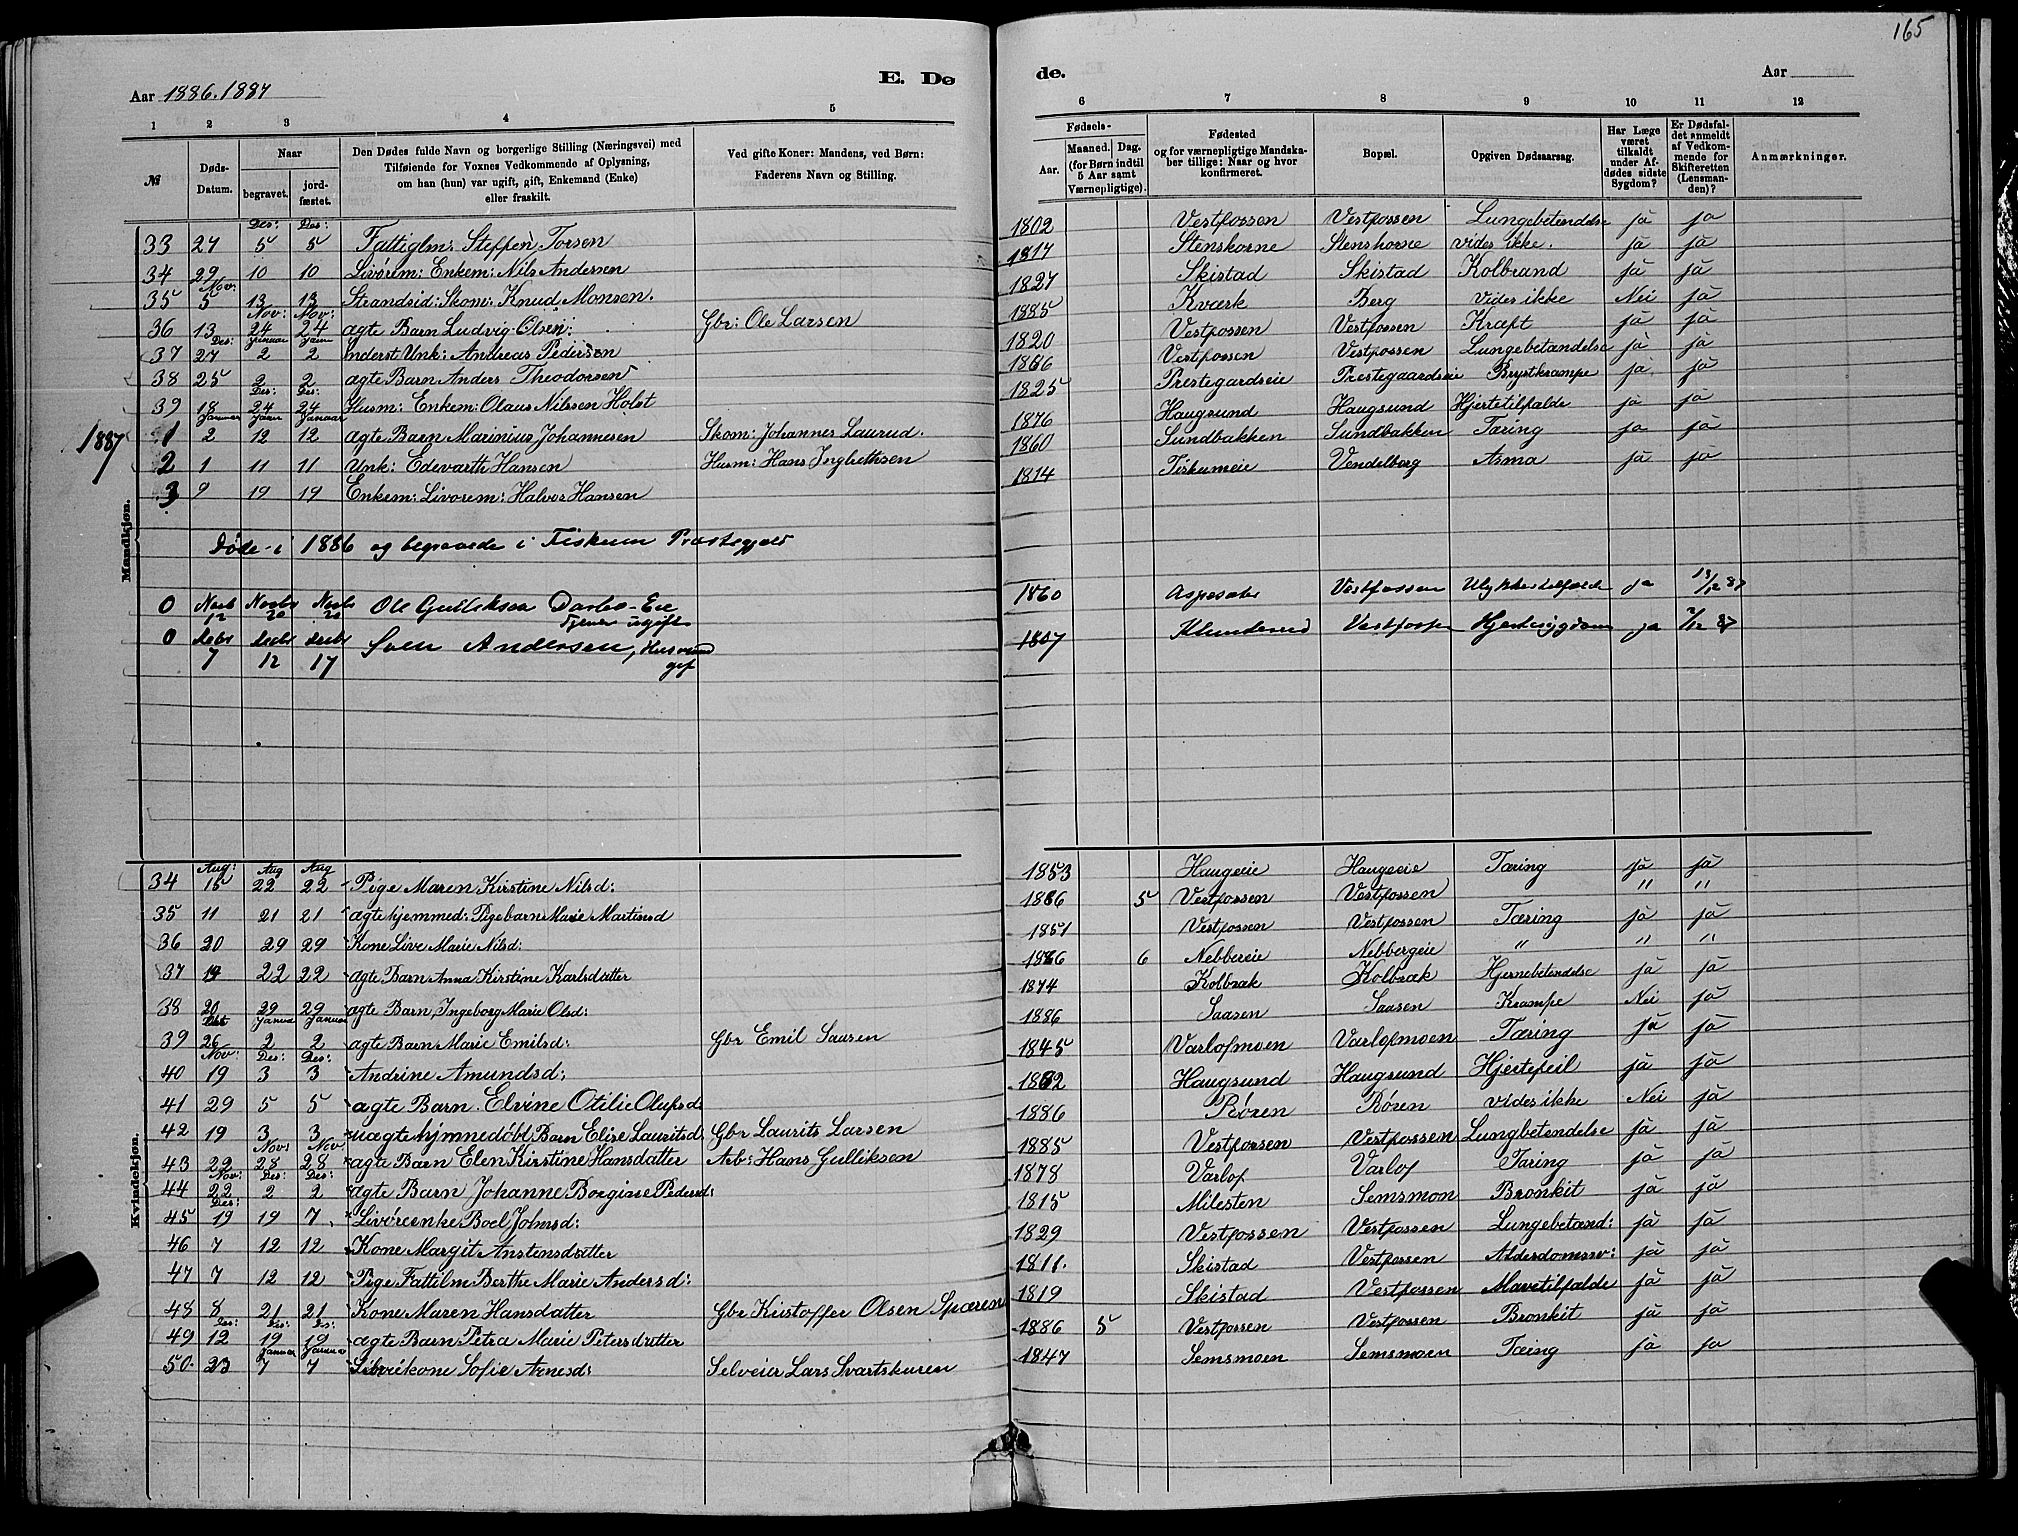 165
Aar 1886. 1887
E. Dø
de.
Aar
1 2 3 4 5 6 7 8 9 10 11 12
№
Døds-Datum.
Naar
begravet.
jord-fæstet.
Den Dødes fulde Navn og borgerlige Stilling (Næringsvei) med
Tilføiende for Voxnes Vedkommende af Oplysning,
om han (hun) var ugift, gift, Enkemand (Enke)
eller fraskilt.
Ved gifte Koner: Mandens, ved Børn:
Faderens Navn og Stilling.
Fødsels-
Aar.
Maaned. Dag.
(for Børn indtil
5 Aar samt
Værnepligtige).
Fødested
og for værnepligtige Mandska-
ber tillige: Naar og hvor
konfirmeret.
Bopæl.
Opgiven Dødsaarsag.
Har Læge
været
tilkaldt
under Af-
dødes sidste
Sygdom?
Er Dødsfal-
det anmeldt
af Vedkom-
mende for
Skifteretten
(Lensman-
den)?
Anmærkninger.
Mandkjøn.
Des: Des:
33 27 5 5 Fattiglm: Steffen Torsen 1802 Vestfossen Vestfossen Lungebetendelse ja ja
34 29 10 10 Livørem: Enkem: Nils Andersen 1817 Stenskorne Stenshorne vides ikke. ja ja
Nov:
35 5 13 13 Strandsid: Skom: Knud Monsen. 1827 Skistad Skistad Kolbrand ja ja
Nov: Nov:
36 13 24 24 ægte Barn Ludvig Olsen: Gbr: Ole Larsen 1885 Kværk Berg Vides ikke Nei ja
Des: Januar Janu
37 27 2 2 Inderst Unk: Andreas Pedersen 1820 Vestfossen Vestfossen Kræft ja ja
38 25 2 2 ægte Barn Anders Theodorsen 1886 Vestfossen Vestfossen Lungebetændelse ja ja
Des: Des:
39 18 24 24 Husm: Enkem: Olaus Nilssen Holst 1825 Prestegardseie Prestegaardseie Brystkrampe ja ja
Januar Janu Januar
1887 1 2 12 12 ægte Barn Marinius Johannesen Skom: Johannes Laurud. 1876 Haugsund Haugsund Hjertetilfalde ja ja
2 1 11 11 Unk: Edevarth Hansen Husm: Hans Ingbrethsen 1860 Sundbakken Sundbakken Tæring ja ja
3 9 19 19 Enkem: Livorem: Halvor Hansen 1814 Fiskumeie Vendelborg Asma ja ja
Døde i 1886 og begravede i Fiskum Præstegjeld
0 Novb 12 Novbr 20 Novbr 20 Ole Gulliksen Darbo-Eie 1860 Vestfossen Ulykkestilfælde ja 13/12 87
Tjener ugift
0 Decbr 7 Decbr 12 Decbr 17 Sven Andersen, Husmand 1807 Vestfossen Hjertesygdom ja 7/12 87
gif
Kvindekjøn.
Aug: Aug Aug
34 15 22 22 Pige Maren Kirstine Nilsd: 1853 Haugeie Haugeie Tæring ja ja
35 11 21 21 ægte hjemmed: Pigebarn Marie Martinsd 1886 5 Vestfossen Vestfossen " "
36 20 29 29 Kone Live Marie Nilsd: 1851 Vestfossen Vestfossen Tæring ja ja
37 14 22 22 ægte Barn Anna Kirstine Karlsdatter 1886 6 Nebbereie Nebbergeie " " "
38 20 29 29 ægte Barn Ingeborg Marie Olsd: 1874 Kolbræk Kolbræk Hjernebetendelse ja ja
Des Janua Januar
39 26 2 2 ægte Barn Marie Emilsd: Gbr Emil Saasen 1886 Saasen Saasen Krampe Nei ja
Nov: Des: Des:
40 19 3 3 Andrine Amundsd: 1845 Varlofmoen Varlofmoen Tæring ja ja
41 29 5 5 ægte Barn Elvine Otilie Olufsd 1882 Haugsund Haugsund Hjertefeil ja ja
42 19 3 3 uægte hjmmedøbt Barn Elise Lauritsd Gbr Laurits Larsen 1886 Røren Røren vides ikke Nei ja
Nov: Nov
43 22 28 28 ægte Barn Elen Kirstine Hansdatter Arb: Hans Gulliksen 1885 Vestfossen Vestfossen Lungbetendelse ja ja
Nov: Des: Des:
44 22 2 2 ægte Barn Johanne Borgine Pedersd: 1878 Varlof Varlof Tæring ja ja
Des:
45 19 19 7 Livøreenke Boel Johnsd: 1815 Milesten Semsmon Bronkit ja ja
46 7 12 12 Kone Margit Anstensdatter 1829 Vestfossen Vestfossen Lungebetænd: ja ja
47 7 12 12 Pige Fattilm Berthe Marie Andersd: 1811. Skistad Vestfossen Alderdomssv: ja ja
48 8 21 21 Kone Maren Hansdatter Gbr Kristoffer Olsen Spæren 1819 Skistad Vestfossen Mavetilfalde ja ja
Des: Des: Des:
49 12 19 19 ægte Barn Petra Marie Petersdatter 1886 5 Vestfossen Vestfossen Bronkit ja ja
Januar Januar
50. 23 7 7 Selveikone Sofie Arnesd: Selveier Lars Svartskuren 1847 Semsmoen Semsmoen Tæing ja ja